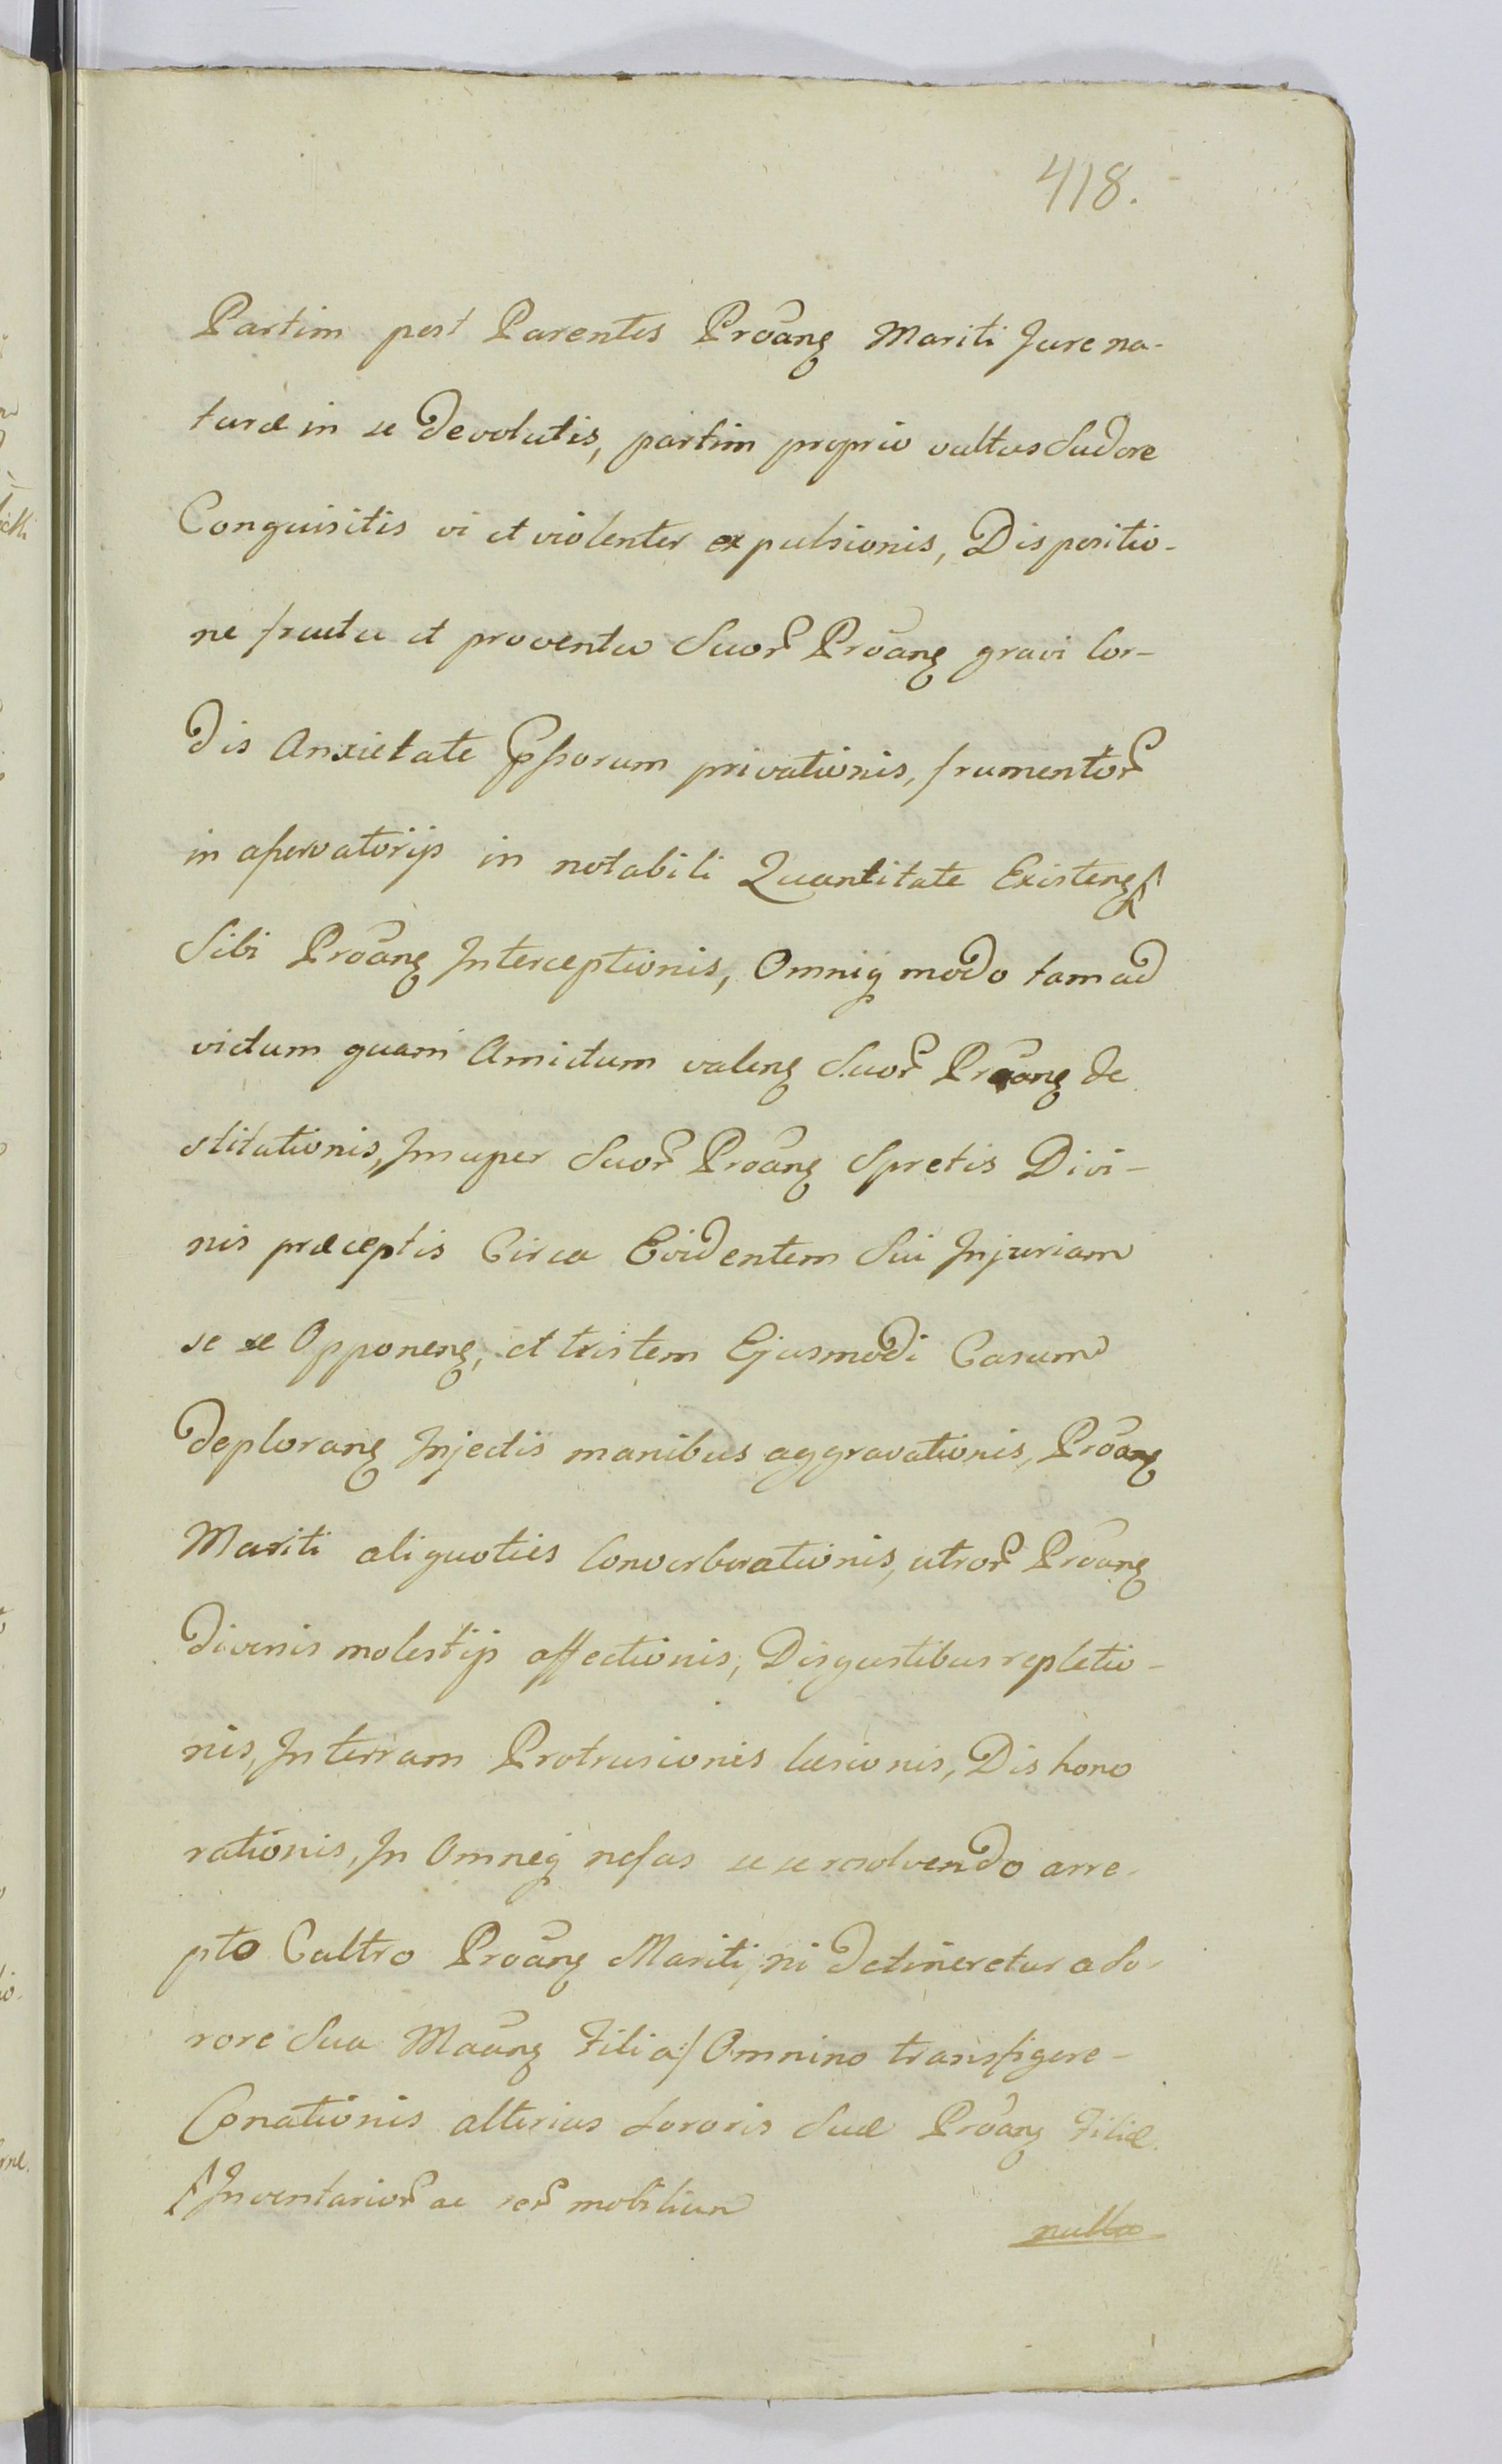 418.
Partim post Parentes Proãnꝫ Mariti Jure na-
turæ in se devolutis, partim proprio vultus Sudore
Conquisitis vi et violenter expulsionis, Dispositio-
ne fructu et proventu Suorꝝ Proãnꝫ gravi Cor-
dis Anxietate Ipsorum privationis, frumentorꝝ
in aservatorijs in notabili Quantitate Existenꝫ
Sibi Proãnꝫ Interceptionis, Omniqꝫ modo tam ad
victum quam Amictum valenꝫ Suorꝝ Proãnꝫ de
stitutionis, Insuper Suorꝝ Proãnꝫ Spretis Divi-
nis præceptis Circa Evidentem Sui Injuriam
se se Opponenꝫ, et tristem Ejusmodi Casum
deploranꝫ Injectis manibus aggravationis, Proãnꝫ
Mariti aliquoties Converberationis, utrorꝝ Proãnꝫ
diversis molestijs affectionis, Disgustibus repletio-
nis, In terram Protrusionis læsionis, Dishono
rationis, In Omneqꝫ nefas se se resolvendo arre-
pto Cultro Proãnꝫ Mariti, ni detineretur a So-
rore Sua Maãnꝫ Filia/ Omnino transfigere-
Conationis alterius Sororis Suæ Proãnꝫ Filiæ
Inventariorꝝ ac rerꝝ mobilium
nulla